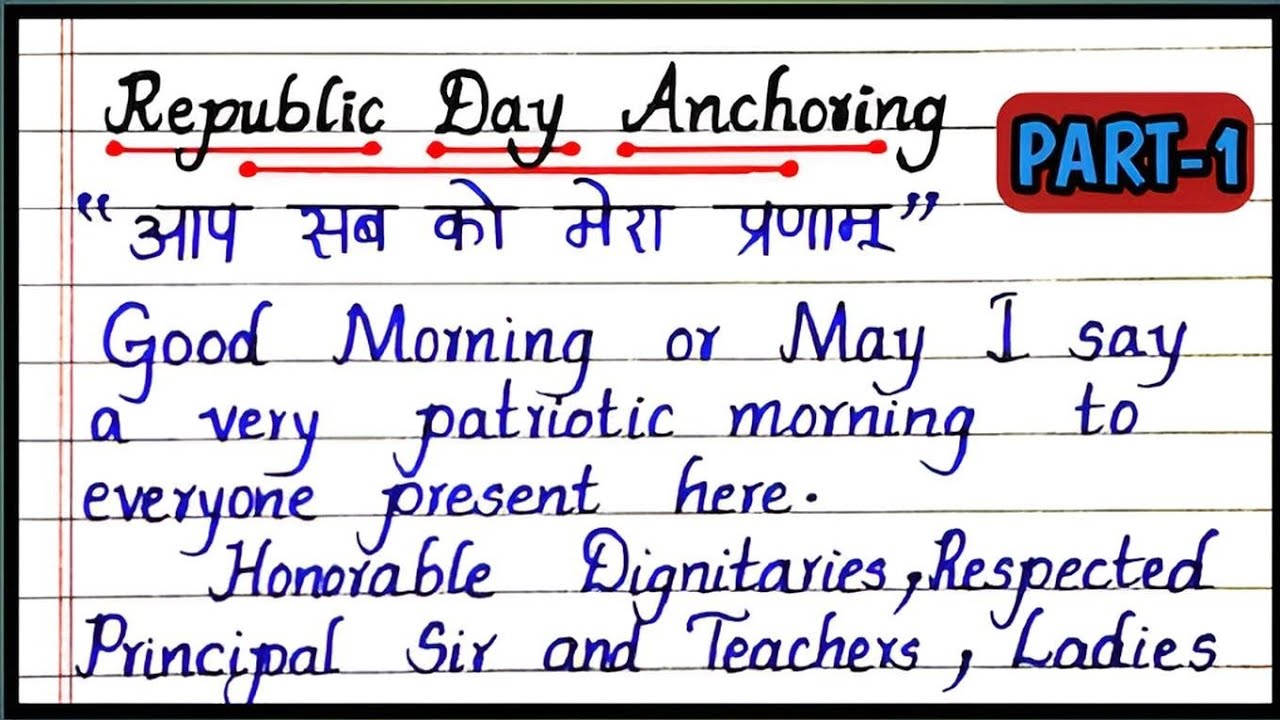 Republic Day Anchoring
PART-1
“आप सब को मेरा प्रणाम्”
Good Morning or May I say
a very patriotic morning to
everyone present here.
Honorable Dignitaries, Respected
Principal Sir and Teachers, Ladies